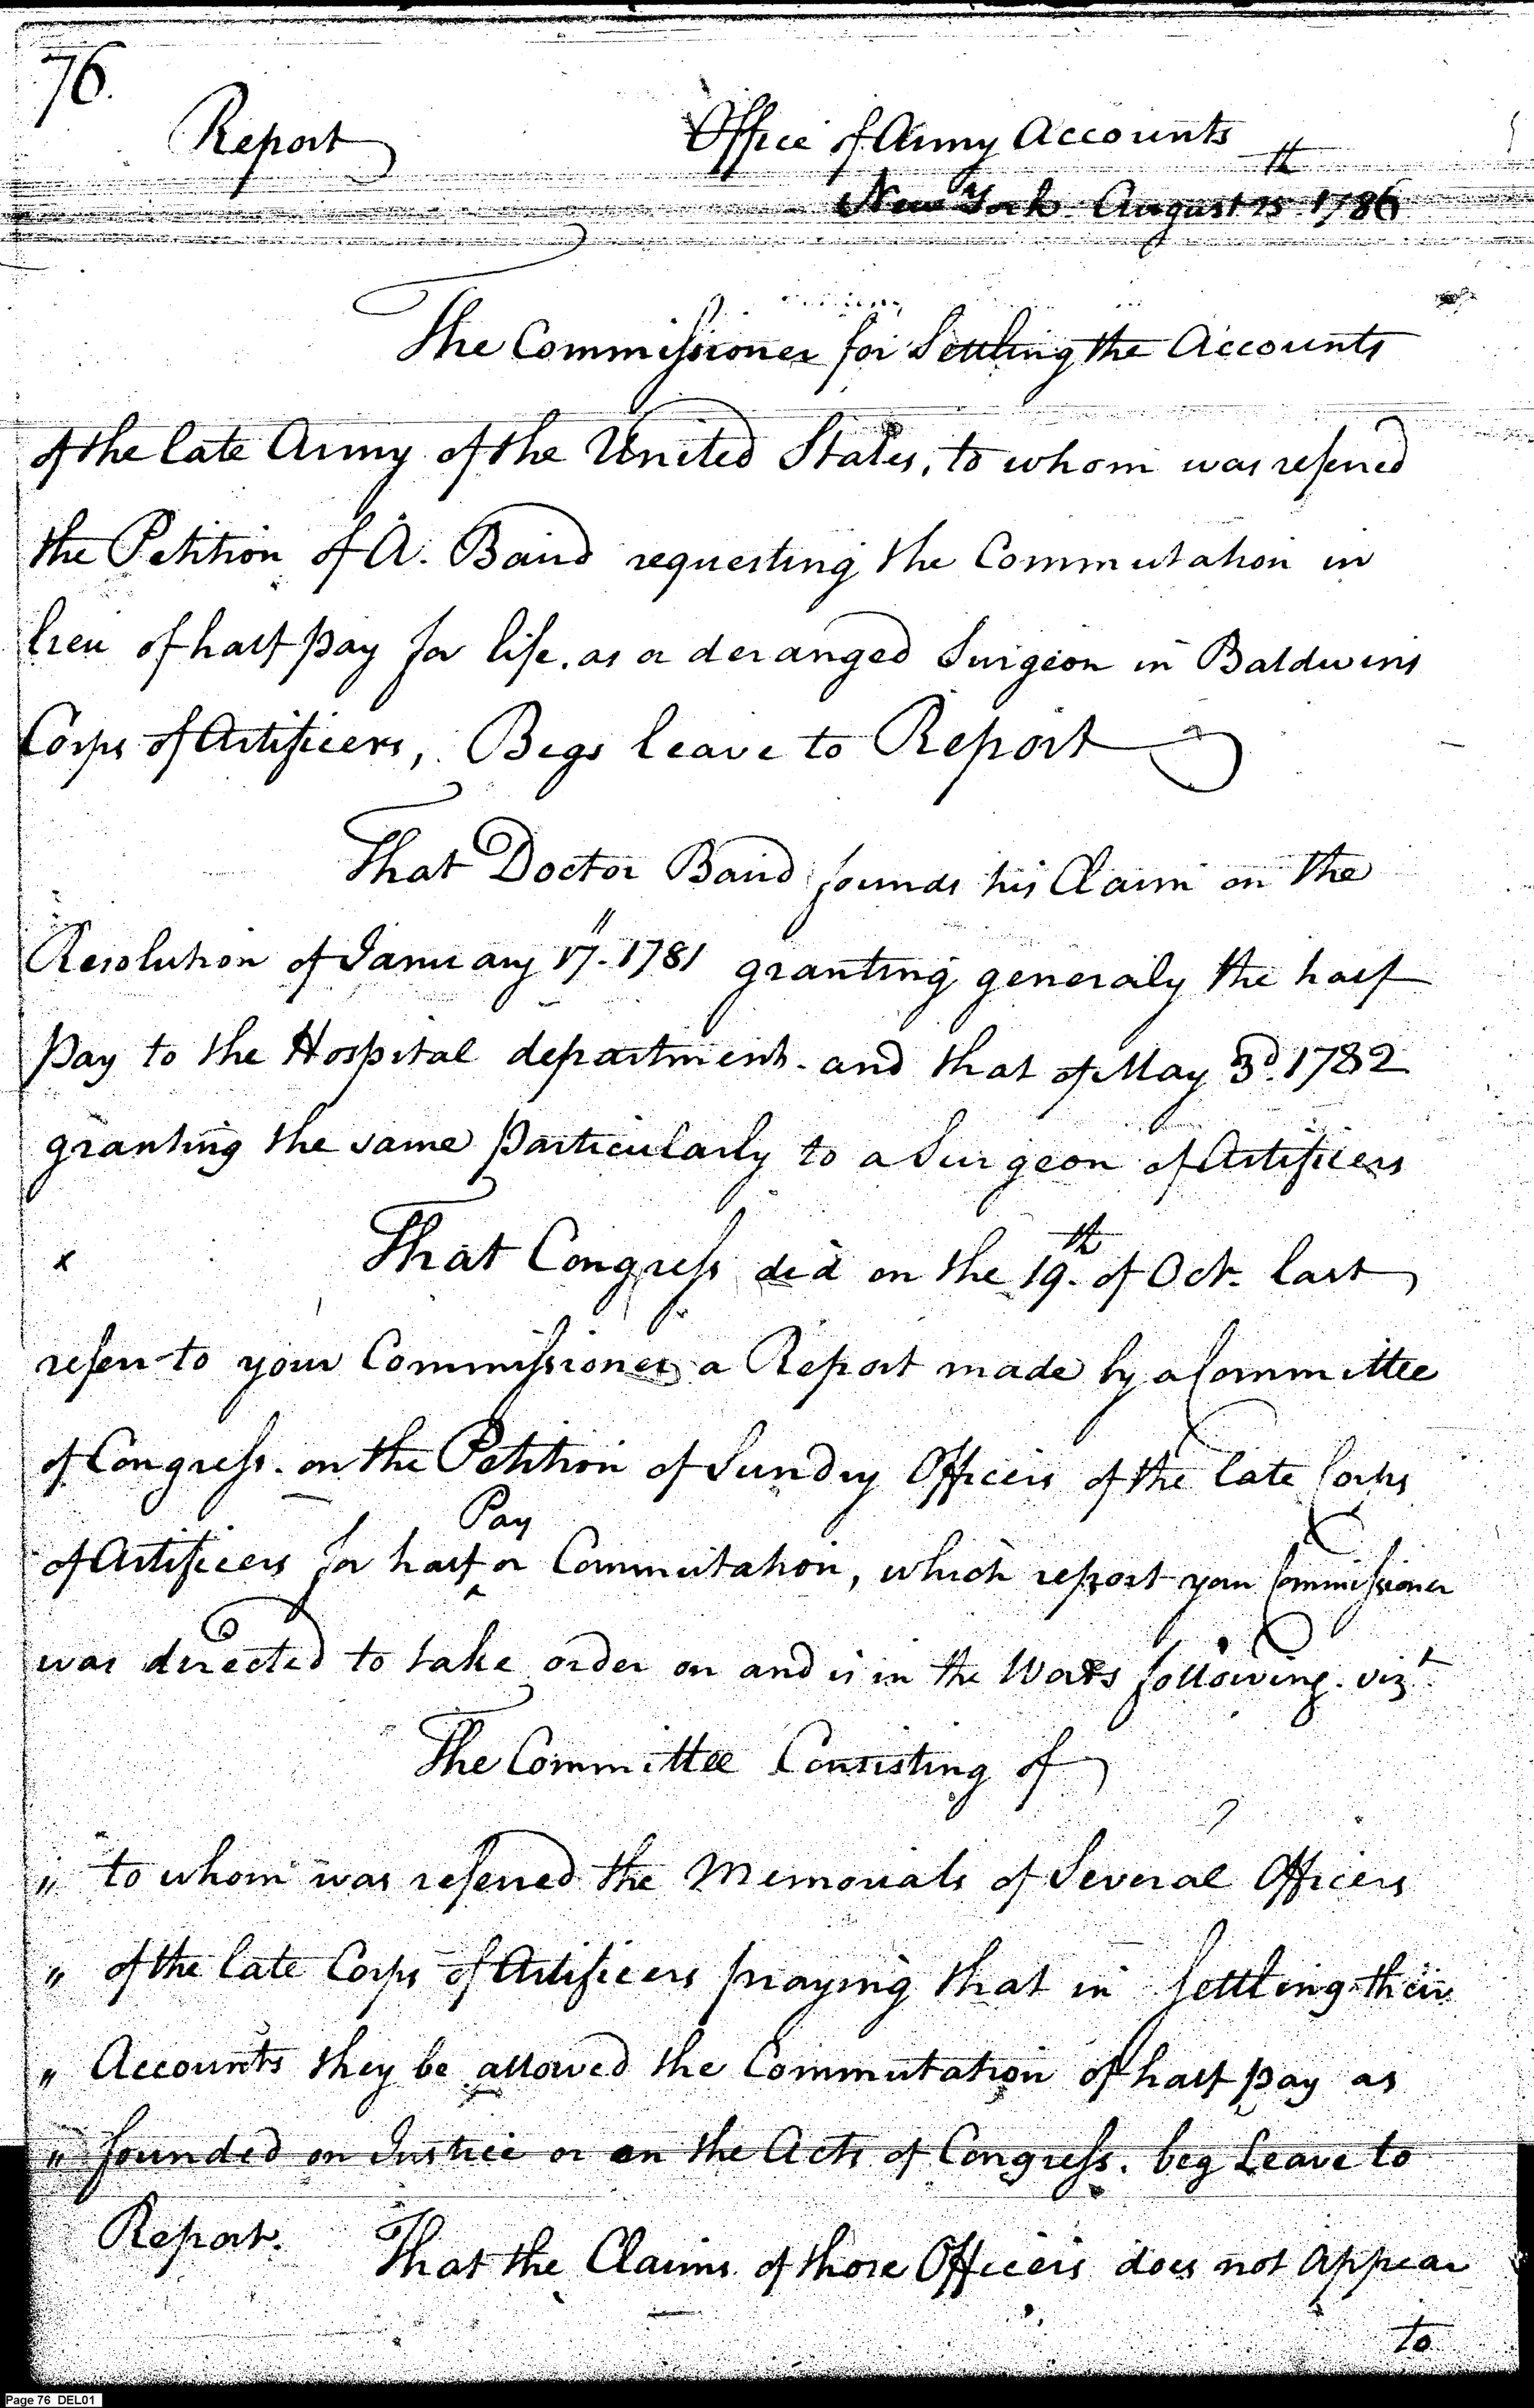 76.
Report
Office of Army Accounts
New York August 15th 1786
The Commissioner for Settling the Accounts
of the late Army of the United States, to whom was referred
the Petition of A. Baird requesting the Commutation in
lieu of half pay for life, as a deranged Surgeon in Baldwins
Corps of Artificers, Begs leave to Report
That Doctor Baird founds his Claim on the
Resolution of January 17. 1781 granting generaly the half
pay to the Hospital department. and that of May 3d. 1782
granting the same particularly to a Surgeon of Artificers
x That Congress did on the 19th. of Oct. last
refer to your Commissioner a Report made by a Committee
of Congress. on the Petition of Sundry Officers of the late Corps
Pay
of Artificers for half ^ or Commutation, which report your Commissioner
was directed to take order on and is in the Words following. vizt
The Committee Consisting of
" to whom was referred the Memorials of Several Officers
" of the late Corps of Artificers praying that in settling their
" Accounts they be allowed the Commutation of half pay as
" founded on Justice or on the Acts of Congress. beg Leave to
Report. That the Claims of those Officers does not appear
to
Page 76 DEL01